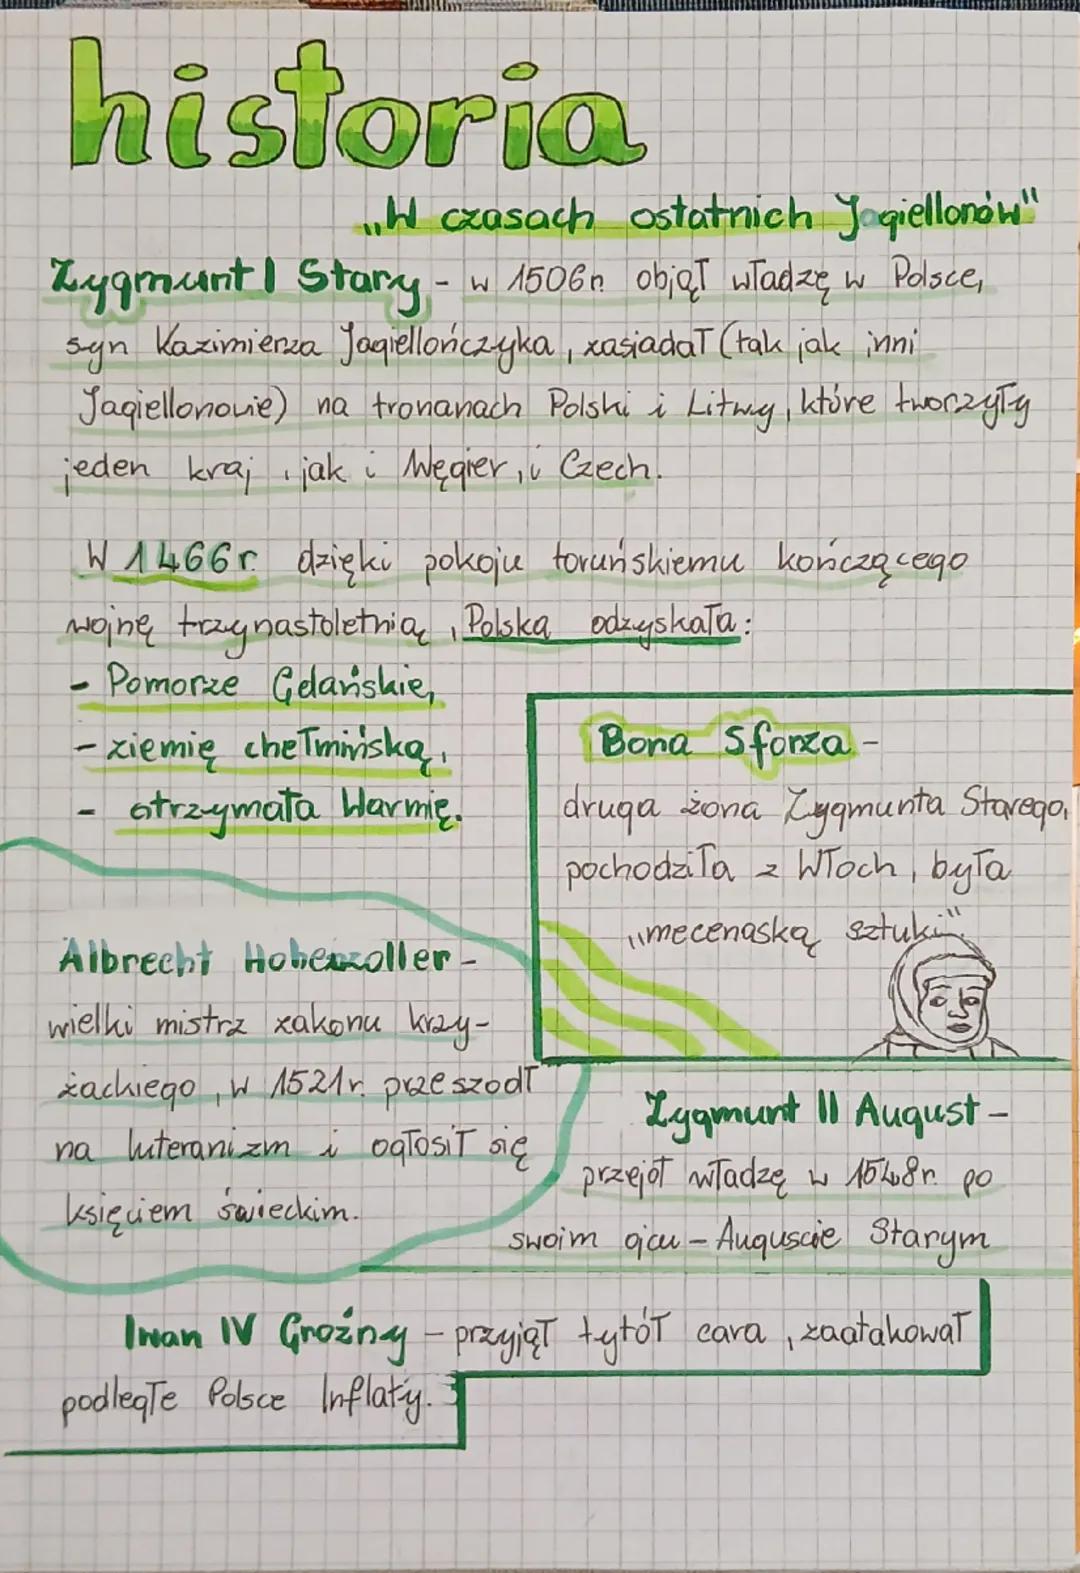 historia
„W czasach ostatnich Jagiellonów"
Zygmunt I Stary - w 1506r. objął władzę w Polsce,
syn Kazimierza Jagiellończyka, zasiadał (tak jak inni
Jagiellonowie) na tronanach Polski i Litwy, które tworzyły
jeden kraj, jak i Węgier, i Czech.
W 1466r. dzięki pokoju toruńskiemu kończącego
wojnę trzynastoletnią, Polska odzyskała:
- Pomorze Gdańskie,
- ziemię chełmińską,
- otrzymała Warmię.
Bona Sforza -
druga żona Zygmunta Starego,
pochodziła z Włoch, była
„mecenaską sztuki".
Albrecht Hohenzoller -
wielki mistrz zakonu krzy-
żackiego, w 1521r. przeszodł
na luteranizm i ogłosił się
księciem świeckim.
Zygmunt II August -
przejoł władzę w 1548r. po
swoim ojcu - Auguscie Starym
Iwan IV Groźny - przyjął tytół cara, zaatakował
podległe Polsce Inflaty.